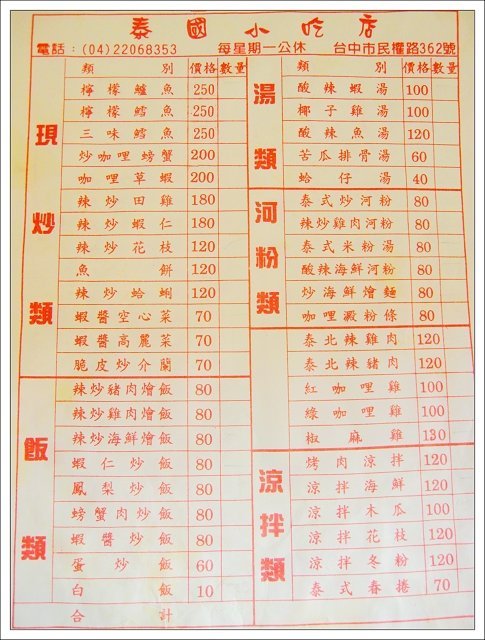 泰國小吃店
電話：(04)22068353 每星期一公休 台中市民權路362號
類別 價格 數量
現炒類
檸檬鱸魚 250
檸檬鱈魚 250
三味鱈魚 250
炒咖哩螃蟹 200
咖哩草蝦 200
辣炒田雞 180
辣炒蝦仁 180
辣炒花枝 120
魚餅 120
辣炒蛤蜊 120
蝦醬空心菜 70
蝦醬高麗菜 70
脆皮炒介蘭 70
飯類
辣炒豬肉燴飯 80
辣炒雞肉燴飯 80
辣炒海鮮燴飯 80
蝦仁炒飯 80
鳳梨炒飯 80
螃蟹肉炒飯 80
蝦醬炒飯 80
蛋炒飯 60
白飯 10
合計
類別 價格 數量
湯類
酸辣蝦湯 100
椰子雞湯 100
酸辣魚湯 120
苦瓜排骨湯 60
蛤仔湯 40
河粉類
泰式炒河粉 80
辣炒雞肉河粉 80
泰式米粉湯 80
酸辣海鮮河粉 80
炒海鮮燴麵 80
咖哩澱粉條 80
泰北辣雞肉 120
泰北辣豬肉 120
紅咖哩雞 100
綠咖哩雞 100
椒麻雞 130
涼拌類
烤肉涼拌 120
涼拌海鮮 120
涼拌木瓜 100
涼拌花枝 120
涼拌冬粉 120
泰式春捲 70